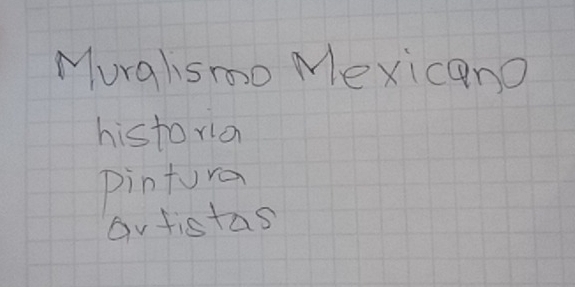 Muralismo Mexicano
historia
pintura
artistas